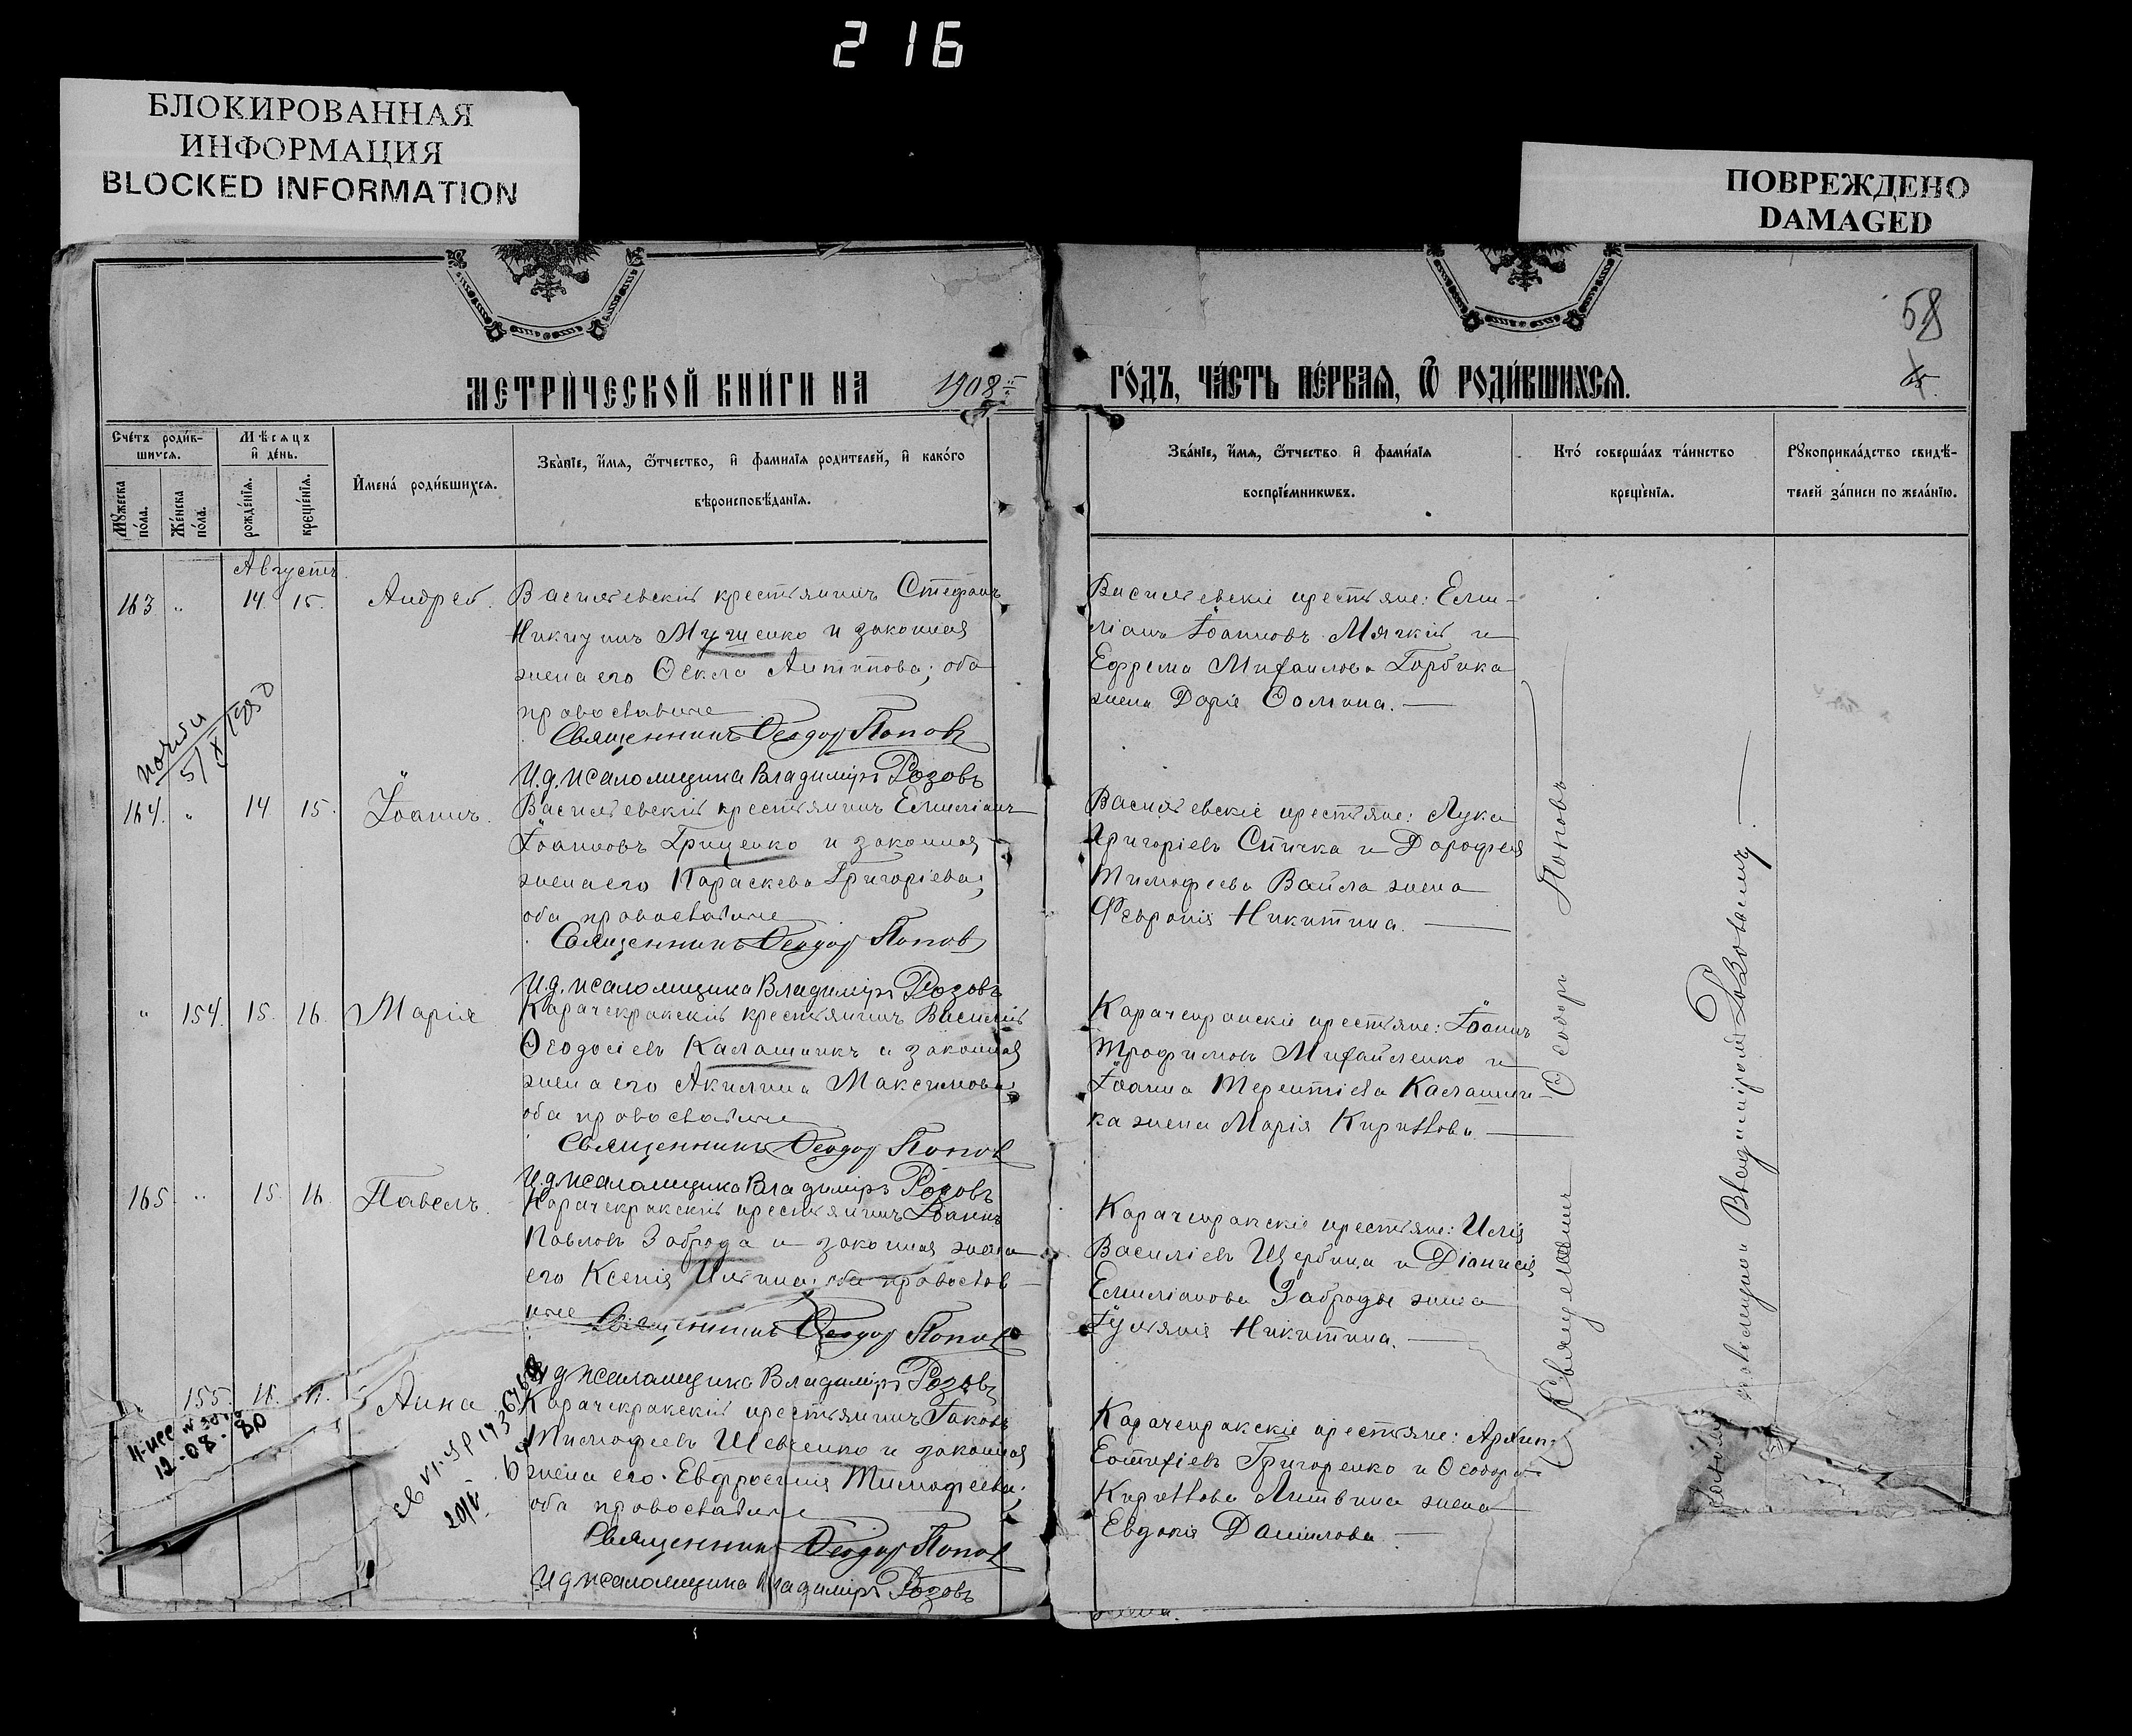 216
БЛОКИРОВАННАЯ
ИНФОРМАЦИЯ
BLOCKED INFORMATION
ПОВРЕЖДЕНО
DAMAGED
58
МЕТРИ́ЧЕСКОЙ КНИ́ГИ НА 1908 ГО́ДЪ, ЧА́СТЬ ПЕ́РВАЯ, Ѿ РОДИ́ВШИХСЯ.
Сче́тъ роди́в-
шихся.
Мѣсяцъ
и҆ де́нь.
Мꙋ́жеска
по́ла.
Же́нска
по́ла.
рожде́нїя.
креще́нїя.
И҆мена́ роди́вшихся.
Зва́нїе, и҆́мя, ѻ҆́тчество, и҆ фами́лїя родителей, и҆ како́го
вѣроисповѣ́данїя.
Зва́нїе, и҆́мя, ѻ҆́тчество и҆ фами́лїя
воспрїе́мникѡвъ.
Кто́ соверша́лъ та́инство
креще́нїя.
Рꙋкоприкла́дство свидѣ́-
телей за́писи по жела́нїю.
Августъ
163 " 14. 15. Андрей. Васильевскій крестьянинъ Стефанъ
Никитинъ Мущенко и законная
жена его Ѳекла Антипова; оба
православные
Священникъ Ѳеодоръ Поповъ
И.д. псаломщика Владиміръ Розовъ
Васильевскіе крестьяне: Еми-
ліанъ Іоанновъ Мягкій и
Ефрема Михаилова Горбика
жена Дарія Ѳомина.
5/X 1950
164. " 14 15. Іоаннъ. Васильевскій крестьянинъ Емиліанъ
Іоанновъ Гриценко и законная
жена его Параскева Григоріева;
оба православные
Священникъ Ѳеодоръ Поповъ
И.д. псаломщика Владиміръ Розовъ
Васильевскіе крестьяне: Лука
Григоріевъ Спичка и Дорофея
Тимофеева Вайла жена
Февронія Никитина.
" 154. 15. 16. Марія Карачекракскій крестьянинъ Василій
Ѳеодосіевъ Калашникъ и законная
жена его Акилина Максимова;
оба православные
Священникъ Ѳеодоръ Поповъ
И.д. псаломщика Владиміръ Розовъ
Карачекракскіе крестьяне: Іоаннъ
Трофимовъ Михайленко и
Іоанна Терентіева Калашни-
ка жена Марія Кириллова.
165 " 15. 16. Павелъ. Карачекракскій крестьянинъ Іоаннъ
Павловъ Заброда и законная жена
его Ксенія Ильина; оба православ-
ные Священникъ Ѳеодоръ Поповъ
И.д. псаломщика Владиміръ Розовъ
Карачекракскіе крестьяне: Илія
Василіевъ Щербина и Діонисія
Емиліанова Заброды жена
Іуліанія Никитина.
" 155. Анна Карачекракскій крестьянинъ Іаковъ
Тимофеевъ Шевченко и законная
жена его Евфросинія Тимофеева;
оба православные
Священникъ Ѳеодоръ Поповъ
И.д. псаломщика Владиміръ Розовъ
Карачекракскіе крестьяне: Архипъ
Григоренко и Ѳеодора
Кириллова Литвина жена
Евдокія Данилова.
12-08-80
Священникъ Ѳеодоръ Поповъ
псаломщикомъ Владиміромъ Розовымъ.
жена.